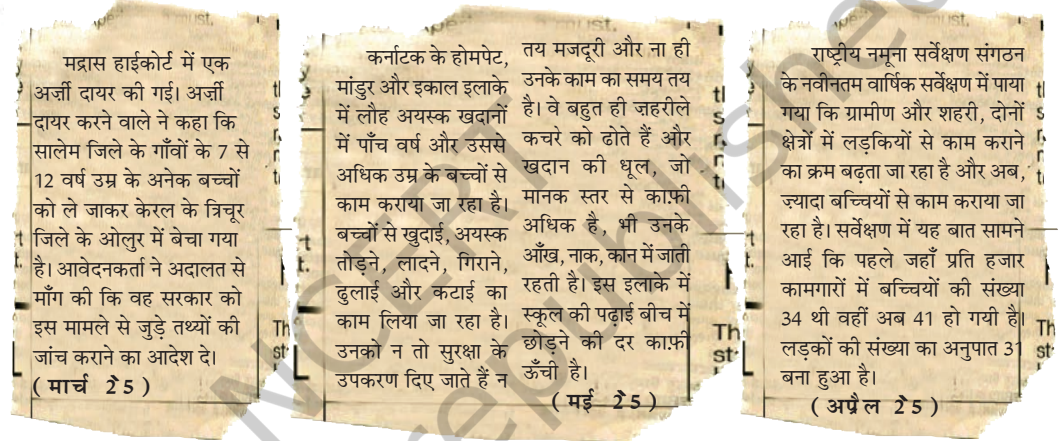 मद्रास हाईकोर्ट में एक
अर्ज़ी दायर की गई। अर्ज़ी
दायर करने वाले ने कहा कि
सालेम जिले के गाँवों के 7 से
12 वर्ष उम्र के अनेक बच्चों
को ले जाकर केरल के त्रिचूर
जिले के ओलुर में बेचा गया
है। आवेदनकर्ता ने अदालत से
माँग की कि वह सरकार को
इस मामले से जुड़े तथ्यों की
जांच कराने का आदेश दे।
( मार्च 25 )
कर्नाटक के होमपेट,
मांडुर और इकाल इलाके
में लौह अयस्क खदानों
में पाँच वर्ष और उससे
अधिक उम्र के बच्चों से
काम कराया जा रहा है।
बच्चों से खुदाई, अयस्क
तोड़ने, लादने, गिराने,
ढुलाई और कटाई का
काम लिया जा रहा है।
उनको न तो सुरक्षा के
उपकरण दिए जाते हैं न
तय मजदूरी और ना ही
उनके काम का समय तय
है। वे बहुत ही ज़हरीले
कचरे को ढोते हैं और
खदान की धूल, जो
मानक स्तर से काफ़ी
अधिक है, भी उनके
आँख, नाक, कान में जाती
रहती है। इस इलाके में
स्कूल की पढ़ाई बीच में
छोड़ने की दर काफ़ी
ऊँची है।
( मई 25 )
राष्ट्रीय नमूना सर्वेक्षण संगठन
के नवीनतम वार्षिक सर्वेक्षण में पाया
गया कि ग्रामीण और शहरी, दोनों
क्षेत्रों में लड़कियों से काम कराने
का क्रम बढ़ता जा रहा है और अब,
ज़्यादा बच्चियों से काम कराया जा
रहा है। सर्वेक्षण में यह बात सामने
आई कि पहले जहाँ प्रति हजार
कामगारों में बच्चियों की संख्या
34 थी वहीं अब 41 हो गयी है।
लड़कों की संख्या का अनुपात 31
बना हुआ है।
( अप्रैल 25 )
NCERT
republished